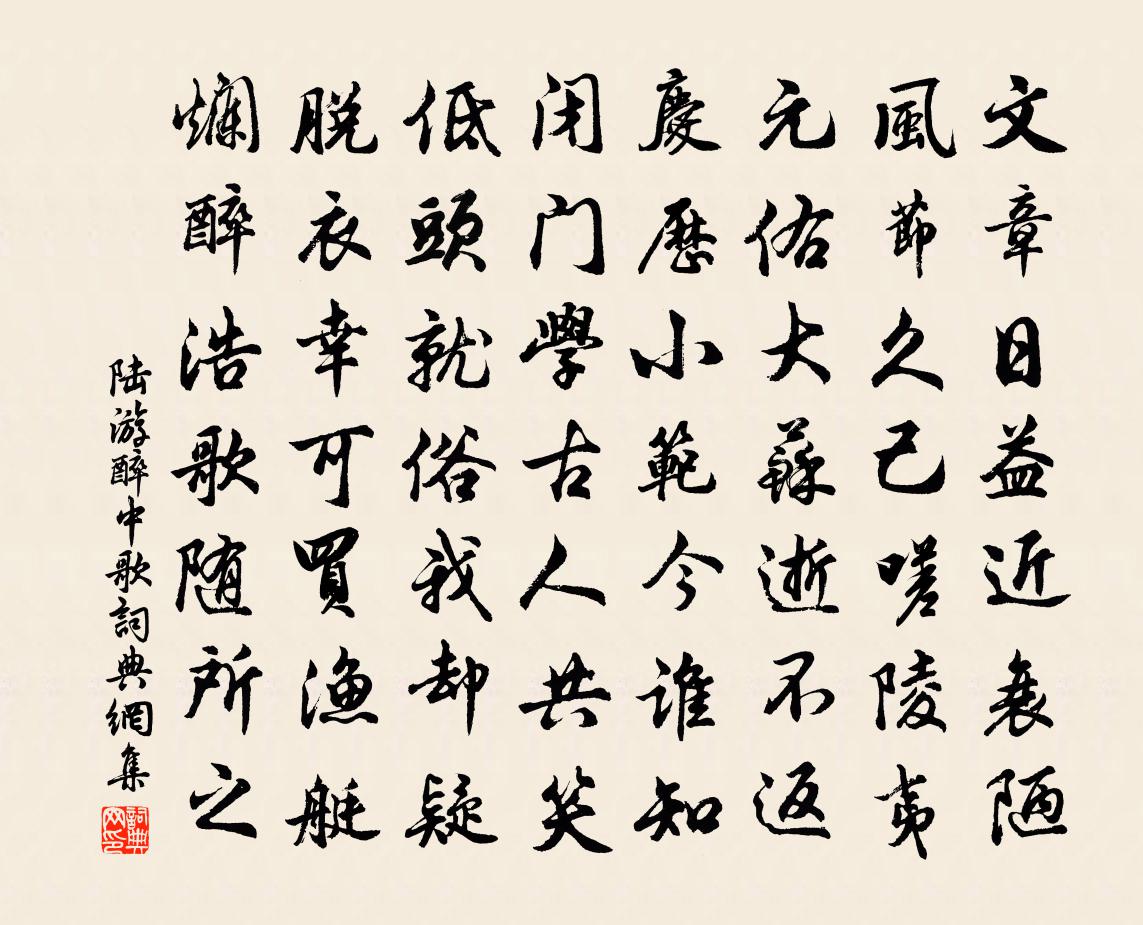 文章日益近衰陋
風節久已嗟陵夷
元佑大蘇逝不返
慶歷小範今誰知
閉門學古人共笑
低頭就俗我卻疑
脫衣幸可買漁艇
爛醉浩歌隨所之
陸游醉中歌詞典網集
詞典網印